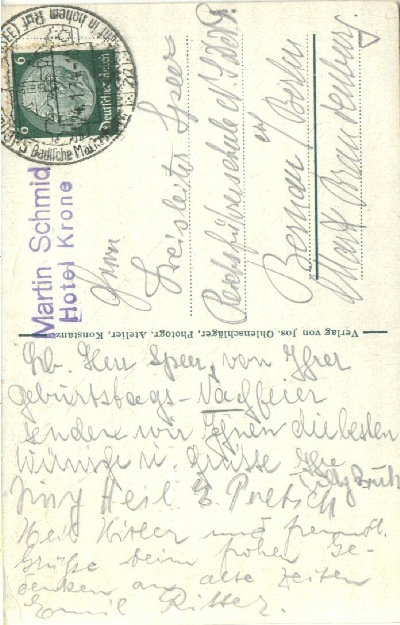 Deutsches Reich
6 6
Martin Schmid
Hotel Krone
Herrn
Kreisleiter Speer
Reichsführerschule
Bernau / Berlin
Mark Brandenburg.
Verlag von Jos. Ohlenschläger, Photogr. Atelier, Konstanz
Lb. Herr Speer, von Ihrer
Geburtstags-Nachfeier
senden wir Ihnen die besten
Wünsche u. Grüsse Ihre
Heil
Heil Hitler und freundl.
Grüße beim frohen Ge-
denken an alte Zeiten
Emil Ritter.